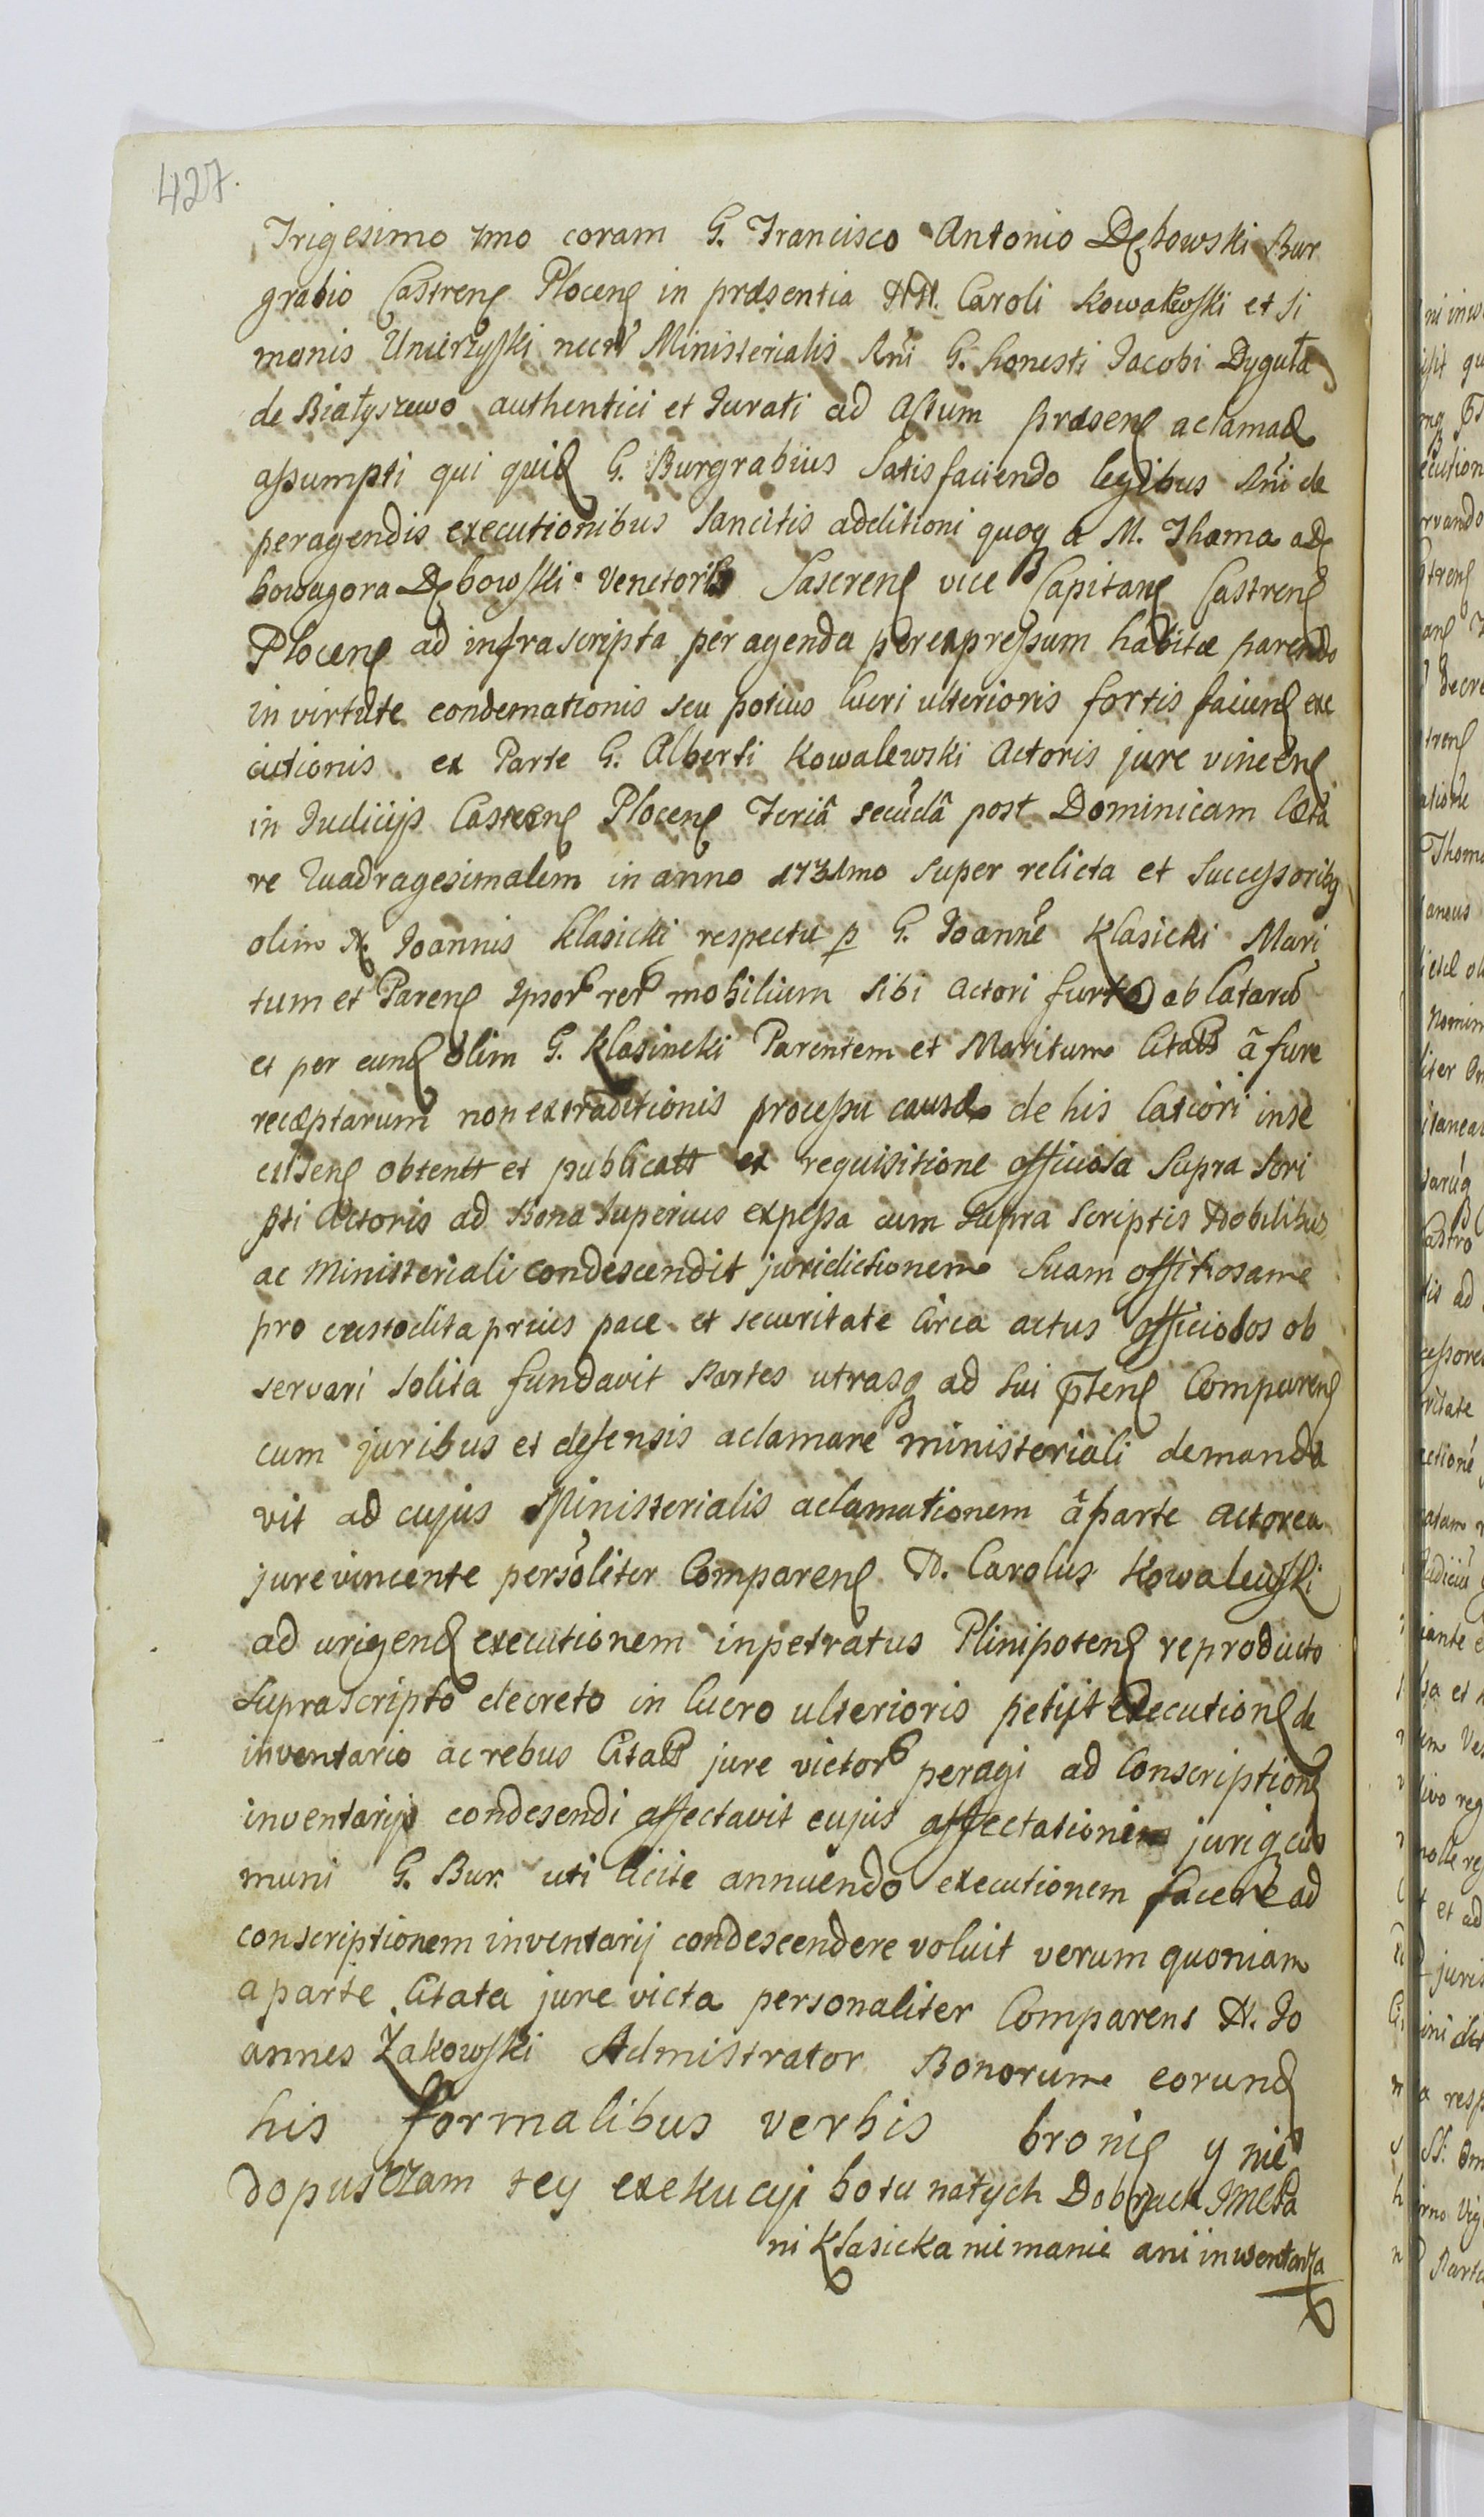 427.
Trigesimo 1mo coram G. Francisco Antonio Dębowski Bur
grabio Castren Plocen in præsentia NN. Caroli Kowalewski et Si
monis Unierzyski necñ Ministerialis Rñi G. honesti Jacobi Dyguła
de Białyszewo authentici et Jurati ad Actum præsen aclamad
assumpti qui quid G. Burgrabius Satisfaciendo legibus Rñi de
peragendis executionibus Sancitis additioni quoq a M. Thoma a Dę
bowagora Dębowski Venatoris vice Capitane Castren
Plocen ad infra scripta peragenda per expressum habitæ parendo
in virtute condemnationis seu potius lucri ulterioris fortis faciend exe
cutionis ex Parte G. Alberti Kowalewski Actoris jure vincen
in Judicijs Castren Plocen Feriâ secûdâ post Dominicam Lætá
re Quadragesimalem in anno 1731mo super relicta et Successoribq
olim N. Joannis Klasicki respectu p G. Joannē Klasicki Mari
tum et Paren ipsor rer mobilium sibi Actori furto ablatarū
et per eund olim G. Klasincki Parentem et Maritum Citatt â fure
receptarum non extraditionis processu causæ de his latiori inse
cuisen obtentt et publicatt ex requisitione officiosa Supra Scri
pti Actoris ad Bona superius expessa cum Supra Scriptis Nobilibus
ac Ministeriali condescendit juridictionem Suam offitiosam
pro custodita prius pace et securitate Circa actus officiosos ob
servari solita fundavit Partes utrasq ad sui pten Comparen
cum juribus et defensis aclamare ministeriali demanda
vit ad cujus Ministerialis aclamationem â parte Actorea
jurevincente persoliter Comparen N. Carolus Kowalewski
ad urigend executionem inpetratus Plinipoten reproducto
Suprascripto decreto in lucro ulterioris petijt execution de
inventario ac rebus Citatt jure victor peragi ad Conscription
inventarij condesendi affectavit cujus affectationi juriq co
muni G. Bur. uti licite annuendo executionem facere ad
conscriptionem inventarij condescendere voluit verum quoniam
a parte Citata jure victa personaliter Comparens N. Jo
annes Żakowski Admistrator Bonorum eorund
his formalibus verbis bronię y nie
dopuszczam tey exekucyi botu natych Dobrach Jmcpa
ni Klasicka niemanie ani inwentarza